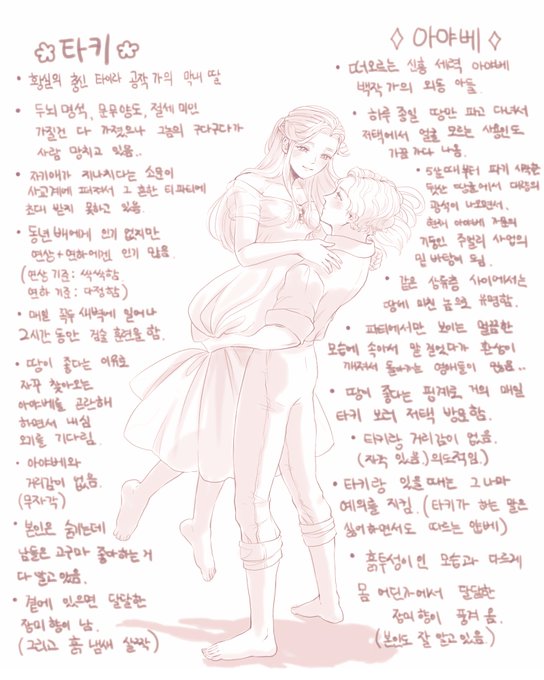 타키
• 황실의 충신 타이라 공작 가의 막내 딸
• 두뇌 명석, 문무양도, 절세 미인
가질건 다 가졌으나 그놈의 구다구다가
사람 망치고 있음..
• 자기애가 지나치다는 소문이
사교계에 퍼져서 그 흔한 티파티에
초대 받지 못하고 있음.
• 동년배에게 인기 없지만
연상+연하에겐 인기 많음.
(연상 기준: 싹싹함
연하 기준: 다정함)
• 매일 꼭두 새벽에 일어나
2시간 동안 검술 훈련을 함.
• 땅이 좋다는 이유로
자꾸 찾아오는
아야베를 곤란해
하면서 내심
오기를 기다림.
• 아야베와
거리감이 없음.
(무자각)
• 본인은 숨기는데
남들은 고구마 좋아하는 거
다 알고 있음.
• 곁에 있으면 달달한
장미 향이 남.
(그리고 흙 냄새 살짝)
아야베
• 떠오르는 신흥 세력 아야베
백작 가의 외동 아들.
• 하루 종일 땅만 파고 다녀서
저택에서 얼굴 모르는 사용인도
가끔 나옴.
• 5살 때부터 파기 시작한
뒷산 땅굴에서 대량의
광석이 나오면서,
현재 아야베 가문의
기둥인 주얼리 사업의
밑 바탕이 됨.
• 같은 상류층 사이에서는
땅에 미친 놈으로 유명함.
• 파티에서만 보이는 멀끔한
모습에 속아서 말 걸었다가 환상이
깨져서 돌아가는 영애들이 많음..
• 땅이 좋다는 핑계로 거의 매일
타키 보러 저택 방문함.
• 타키랑 거리감이 없음.
(자각 있음.)의도적임.)
• 타키랑 있을 때는 그나마
예의를 지킴.(타키가 하는 말은
싫어하면서도 따르는 안베)
• 흙투성이인 모습과 다르게
몸 어딘가에서 달달한
장미 향이 풍겨 옴.
(본인도 잘 알고 있음.)